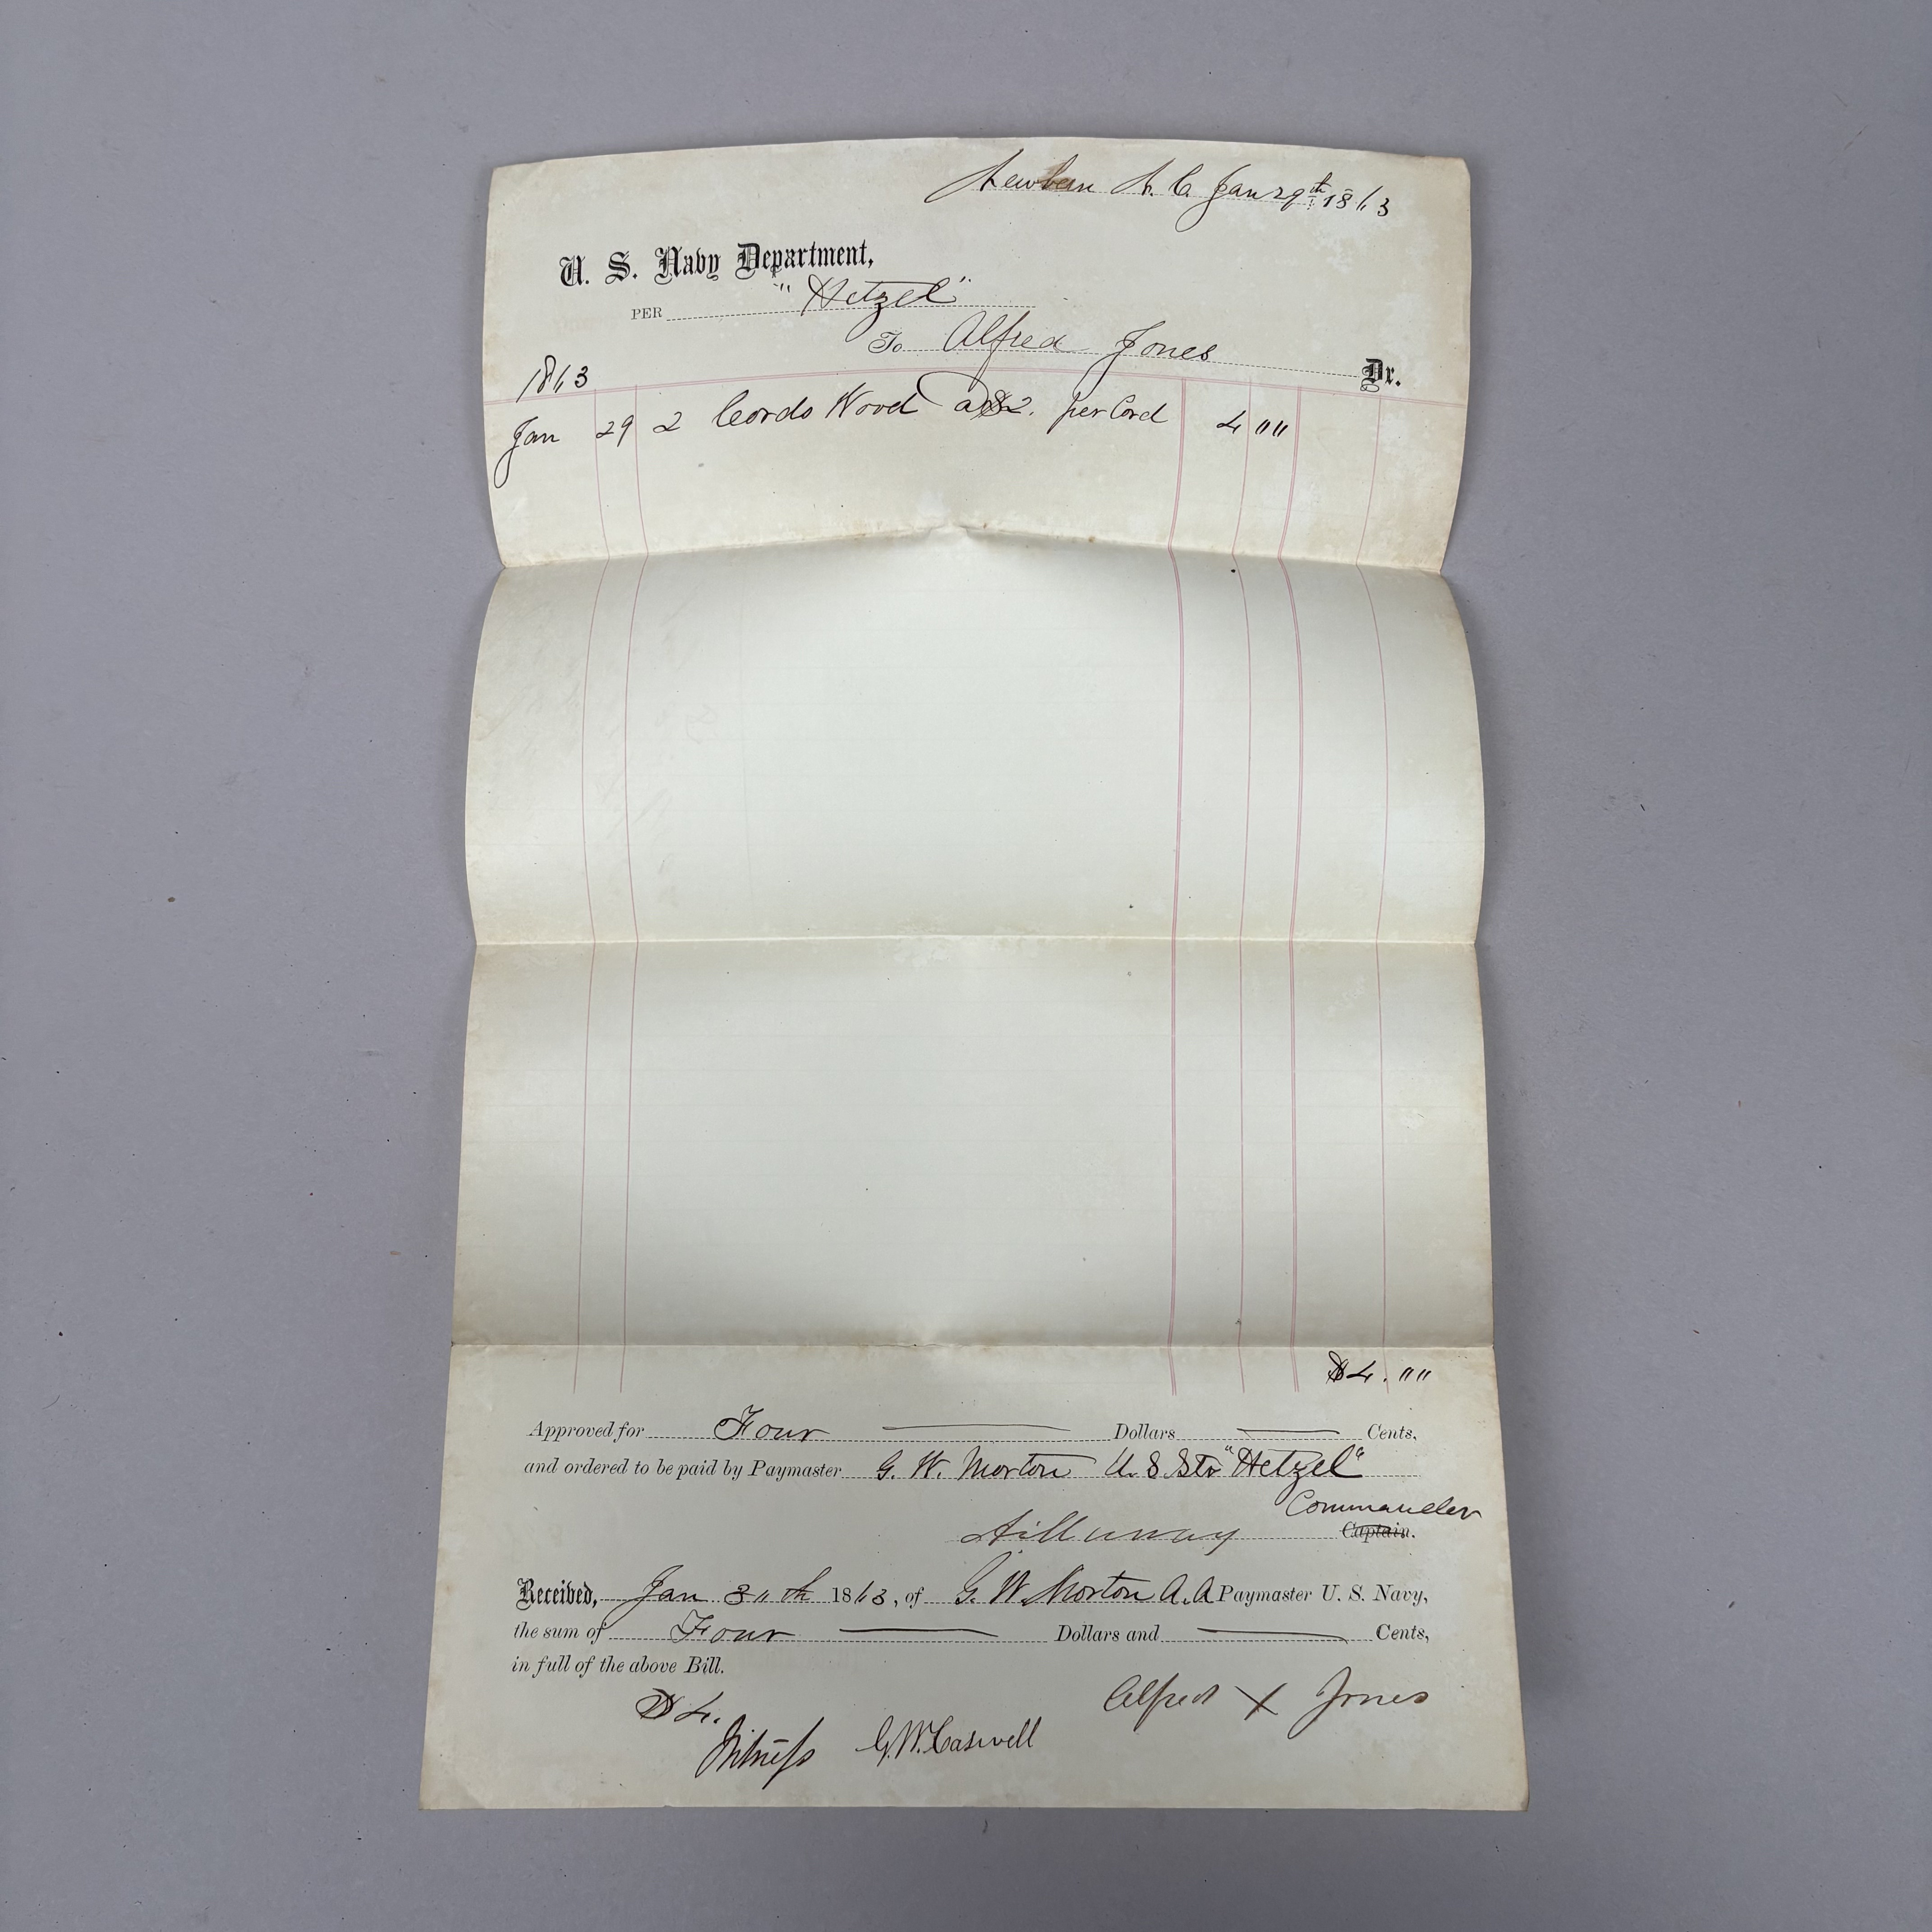 Newbern N. C. Jan 29th 1863
U. S. Navy Department,
PER "Hetzel"
To Alfred Jones Dr.
1863
Jan 29 2 Cords Wood a $2. per Cord 4 ""
$4. ""
Approved for Four Dollars Cents,
and ordered to be paid by Paymaster G. W. Morton U. S. Str "Hetzel"
Commander
Captain.
Received, Jan 30th 1863, of G. W. Morton A. A Paymaster U. S. Navy,
the sum of Four Dollars and Cents,
in full of the above Bill.
$4. Alfred X Jones
Witness G. W. Caswell